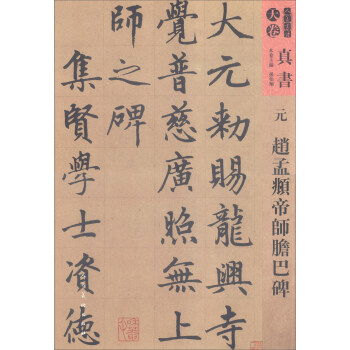 大卷
真書
元 趙孟頫帝師膽巴碑
大元勑賜龍興寺
覺普慈廣照無上
師之碑
集賢學士資德